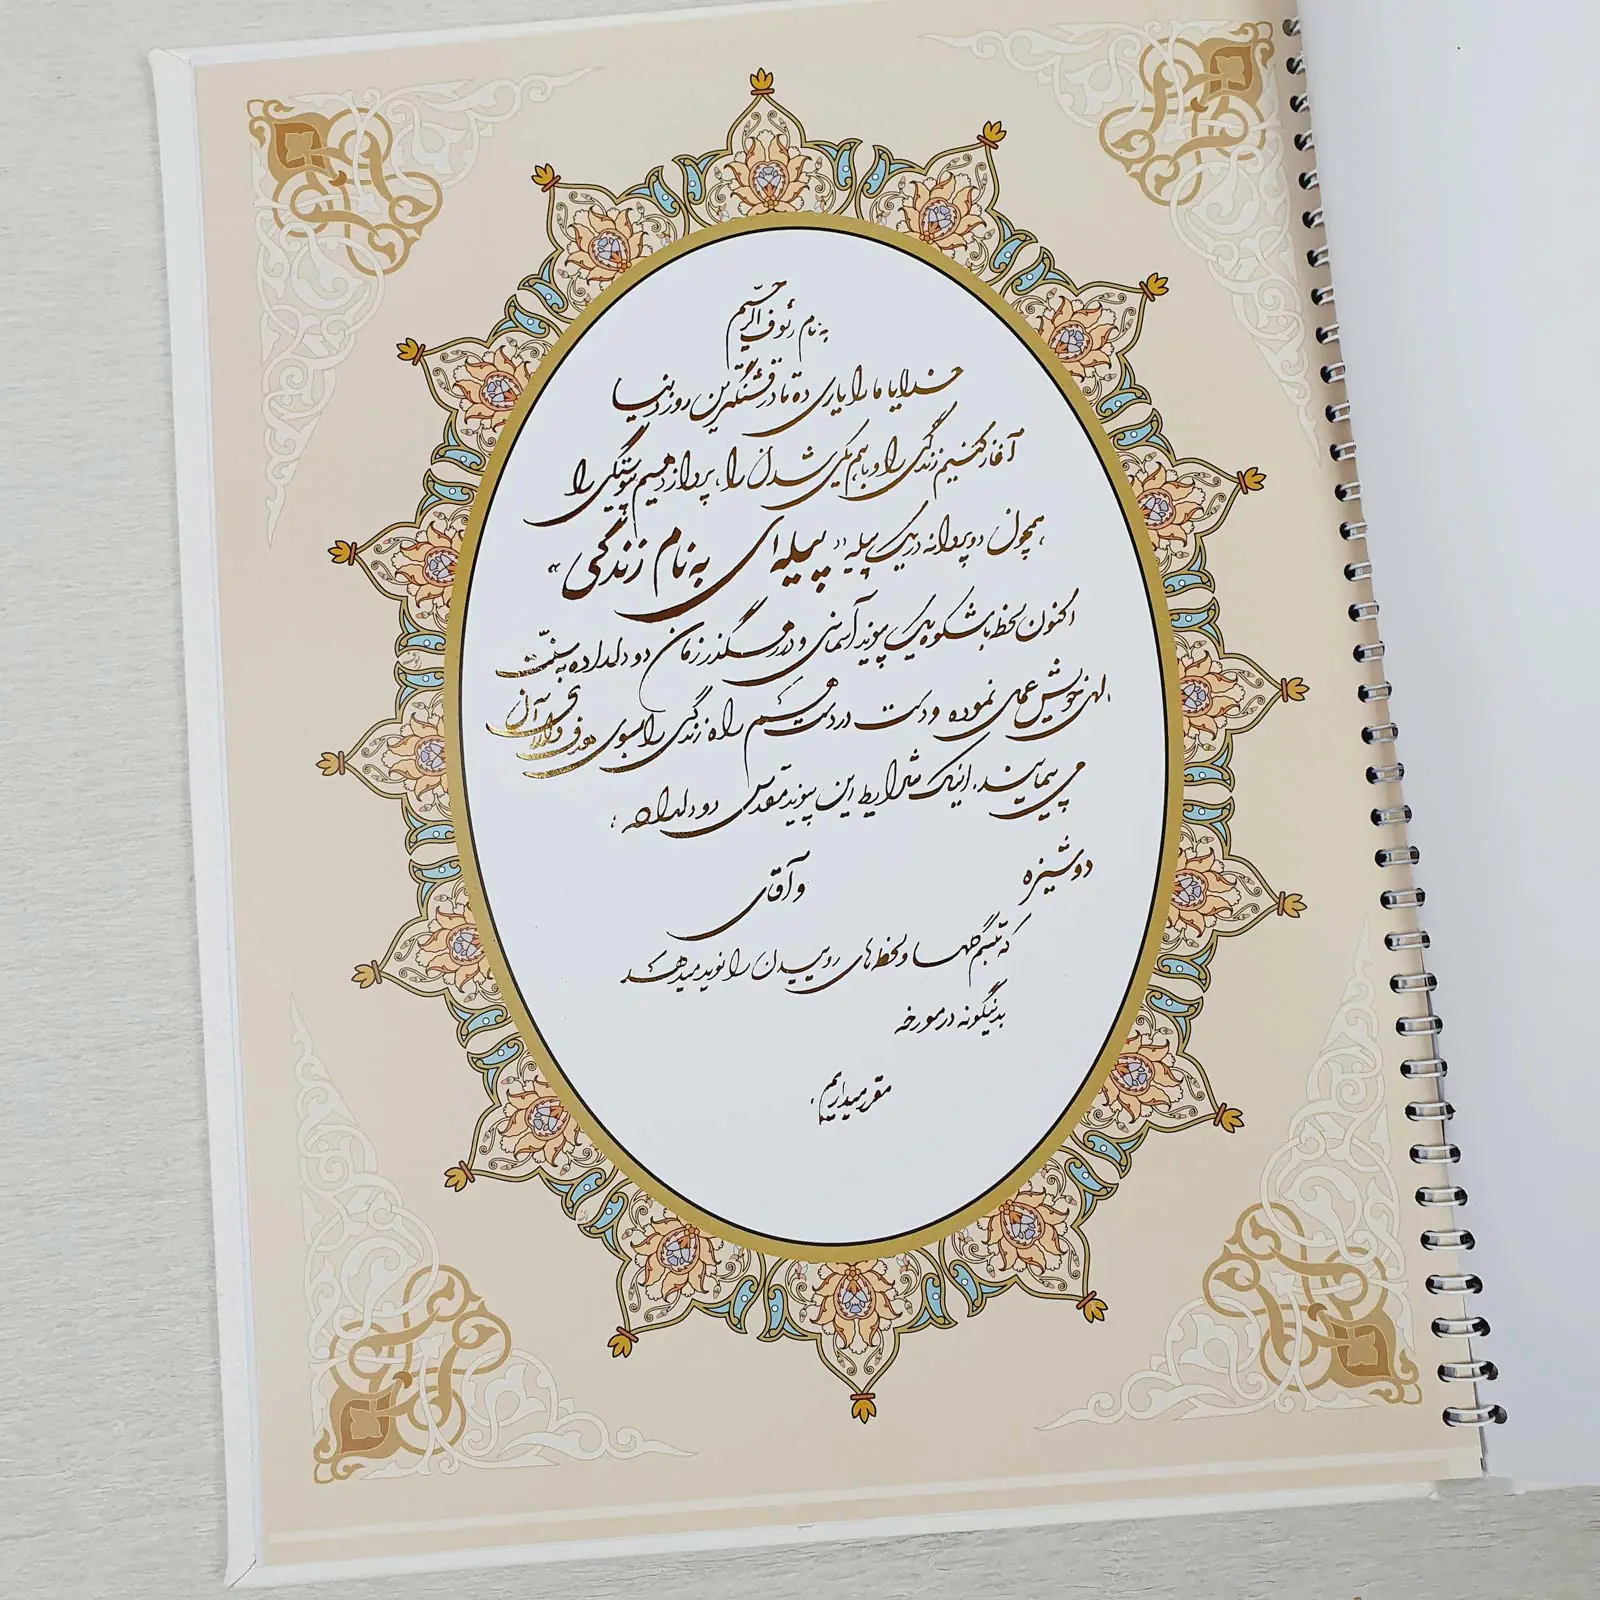 به نام رئوف الرحیم
خدایا ما را یاری ده تا در قشنگترین روز دنیا
آغاز کنیم زندگی را و با هم یکی شدن را، پرواز دهیم پیوستگی را
همچون دو پروانه در یک پیله «پیله‌ای به نام زندگی»
اکنون لحظه باشکوه یک پیوند آسمانی و در رهگذر زمان دو دلداده به سنت
الهی خویش عمل نموده و دست در دست هم راه زندگی را بسوی هدفی والای آن
می‌پیمایند. اینک شرایط این پیوند مقدس دو دلداده؛
دوشیزه و آقای
که تبسم گلها و لحظه‌های روییدن را نوید میدهند
بدینگونه در مورخه
مقرر میداریم.